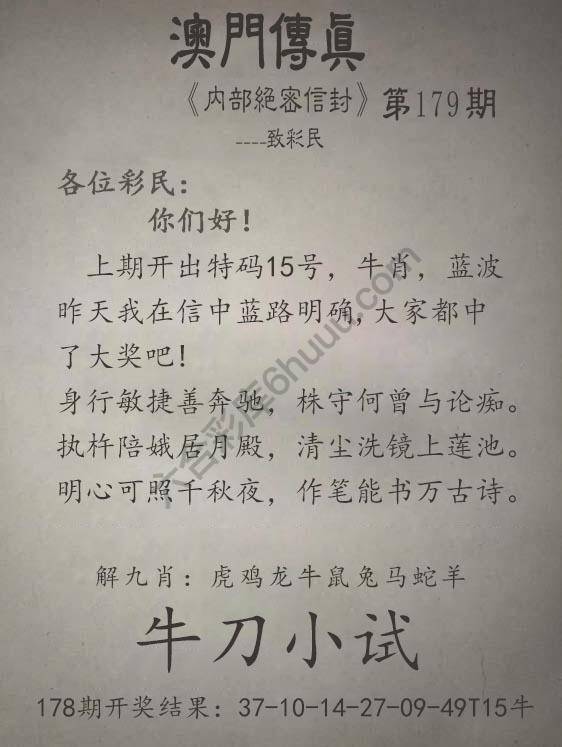 澳門傳眞
《内部絕密信封》第179期
----致彩民
各位彩民：
你们好！
上期开出特码15号，牛肖，蓝波
昨天我在信中蓝路明确,大家都中
了大奖吧！
身行敏捷善奔驰，株守何曾与论痴。
执杵陪娥居月殿，清尘洗镜上莲池。
明心可照千秋夜，作笔能书万古诗。
解九肖：虎鸡龙牛鼠兔马蛇羊
牛刀小试
178期开奖结果：37-10-14-27-09-49T15牛
六合彩库6huuu.com